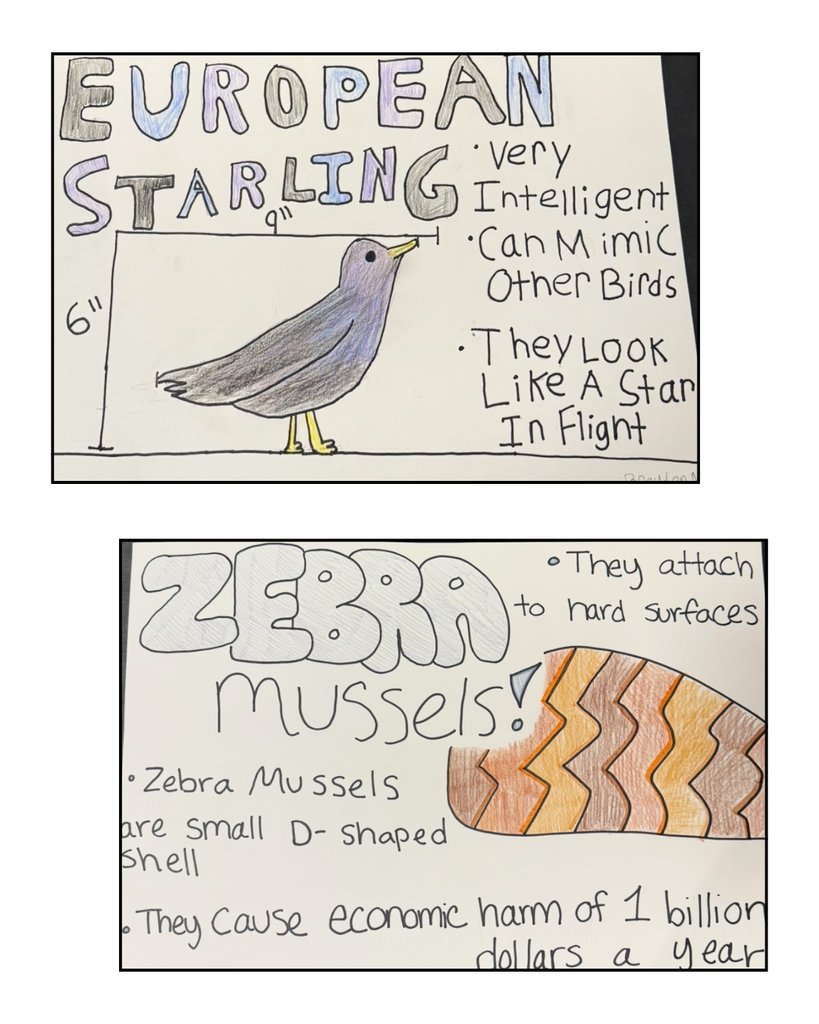 EUROPEAN
STARLING
9"
6"
• Very
Intelligent
• Can Mimic
Other Birds
• They Look
Like A Star
In Flight
ZEBRA
Mussels!
• They attach
to hard surfaces
• Zebra Mussels
are small D- shaped
shell
• They Cause economic harm of 1 billion
dollars a year